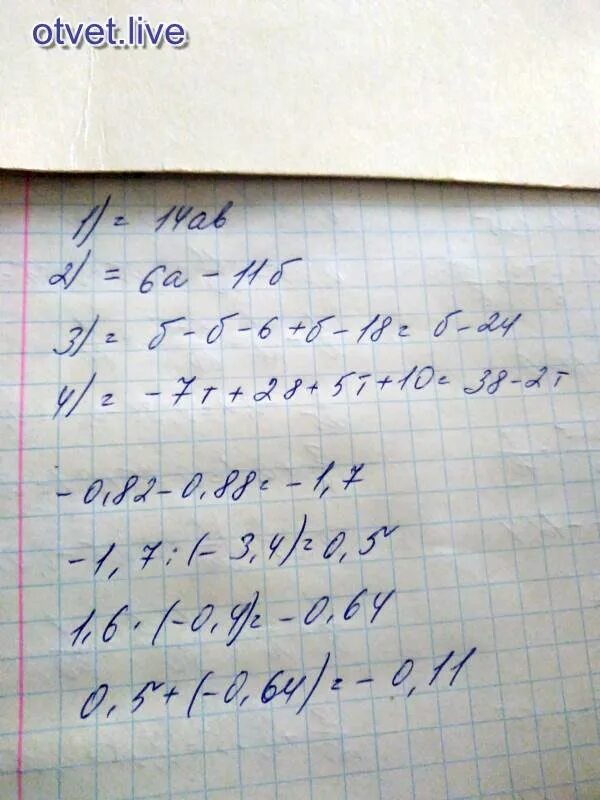 otvet.live
1) = 14ав
2) = 6а - 11б
3) = б - б - 6 + б - 18 = б - 24
4) = - 7т + 28 + 5т + 10 = 38 - 2т
- 0,82 - 0,88 = - 1,7
- 1,7 : (- 3,4) = 0,5
1,6 · (-0,4) = - 0,64
0,5 + (-0,64) = - 0,11